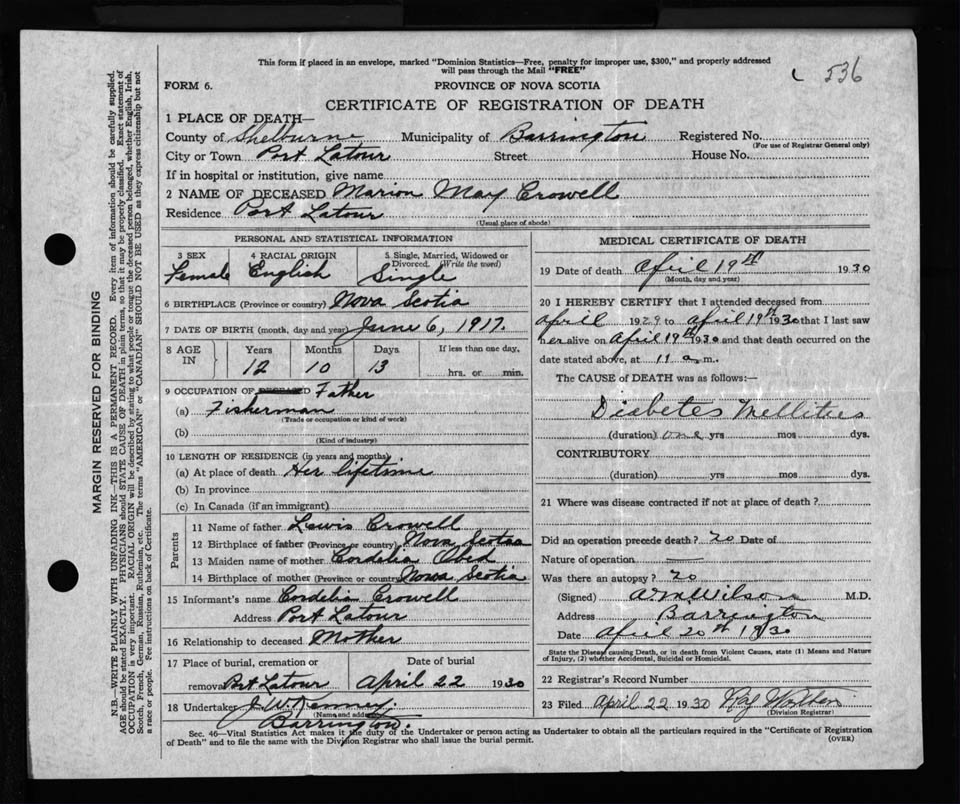 This form if placed in an envelope, marked "Dominion Statistics—Free, penalty for improper use, $300," and properly addressed
will pass through the Mail "FREE"
536
FORM 6.
PROVINCE OF NOVA SCOTIA
CERTIFICATE OF REGISTRATION OF DEATH
1 PLACE OF DEATH—
County of Shelburne Municipality of Barrington Registered No.
(For use of Registrar General only)
City or Town Port Latour Street House No.
If in hospital or institution, give name
2 NAME OF DECEASED Marion May Crowell
Residence Port Latour
(Usual place of abode)
PERSONAL AND STATISTICAL INFORMATION
3 SEX 4 RACIAL ORIGIN 5 Single, Married, Widowed or Divorced. (Write the word)
Female English Single
6 BIRTHPLACE (Province or country) Nova Scotia
7 DATE OF BIRTH (month, day and year) June 6, 1917.
8 AGE IN Years Months Days If less than one day,
12 10 13 hrs. or min.
9 OCCUPATION OF DECEASED Father
(a) Fisherman
(Trade or occupation or kind of work)
(b)
(Kind of industry)
10 LENGTH OF RESIDENCE (in years and months)
(a) At place of death Her lifetime
(b) In province
(c) In Canada (if an immigrant)
Parents
11 Name of father Lewis Crowell
12 Birthplace of father (Province or country) Nova Scotia
13 Maiden name of mother Cordelia Obed
14 Birthplace of mother (Province or country) Nova Scotia
15 Informant's name Cordelia Crowell
Address Port Latour
16 Relationship to deceased Mother
17 Place of burial, cremation or Date of burial
removal Port Latour April 22 1930
18 Undertaker J.W. Kenney.
(Name and address)
Barrington.
MEDICAL CERTIFICATE OF DEATH
19 Date of death April 19th 1930
(Month, day and year)
20 I HEREBY CERTIFY that I attended deceased from
April 1929 to April 19th 1930 that I last saw
her alive on April 19th 1930 and that death occurred on the
date stated above, at 11 a m.
The CAUSE of DEATH was as follows:—
Diabetes Mellitus
(duration) one yrs mos dys.
CONTRIBUTORY
(duration) yrs mos dys.
21 Where was disease contracted if not at place of death?
Did an operation precede death? no Date of
Nature of operation —
Was there an autopsy? no
(Signed) A M Wilson M.D.
Address Barrington
Date April 20th 1930
State the Disease causing Death, or in death from Violent Causes, state (1) Means and Nature
of Injury, (2) whether Accidental, Suicidal or Homicidal.
22 Registrar's Record Number
23 Filed April 22 1930
(Division Registrar)
Sec. 46—Vital Statistics Act makes it the duty of the Undertaker or person acting as Undertaker to obtain all the particulars required in the "Certificate of Registration
of Death" and to file the same with the Division Registrar who shall issue the burial permit.
(OVER)
MARGIN RESERVED FOR BINDING
N.B.—WRITE PLAINLY WITH UNFADING INK—THIS IS A PERMANENT RECORD. Every item of information should be carefully supplied.
AGE should be stated EXACTLY. PHYSICIANS should STATE CAUSE OF DEATH in plain terms, so that it may be properly classified. Exact statement of
OCCUPATION is very important. RACIAL ORIGIN will be described by stating to what people or tongue the deceased person belonged, whether English, Irish,
Scotch, French, German, Russian, Ruthenian, etc. The terms "AMERICAN" or "CANADIAN" SHOULD NOT BE USED as they express citizenship but not
a race or people. Fee instructions on back of Certificate.